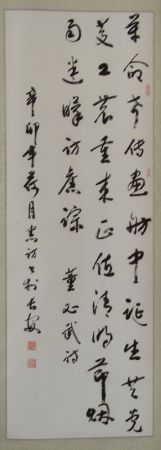 革命声传画舫中诞生共党
庆工农重来正值清明节烟
雨迷矇访旧踪 董必武诗
辛卯年荷月